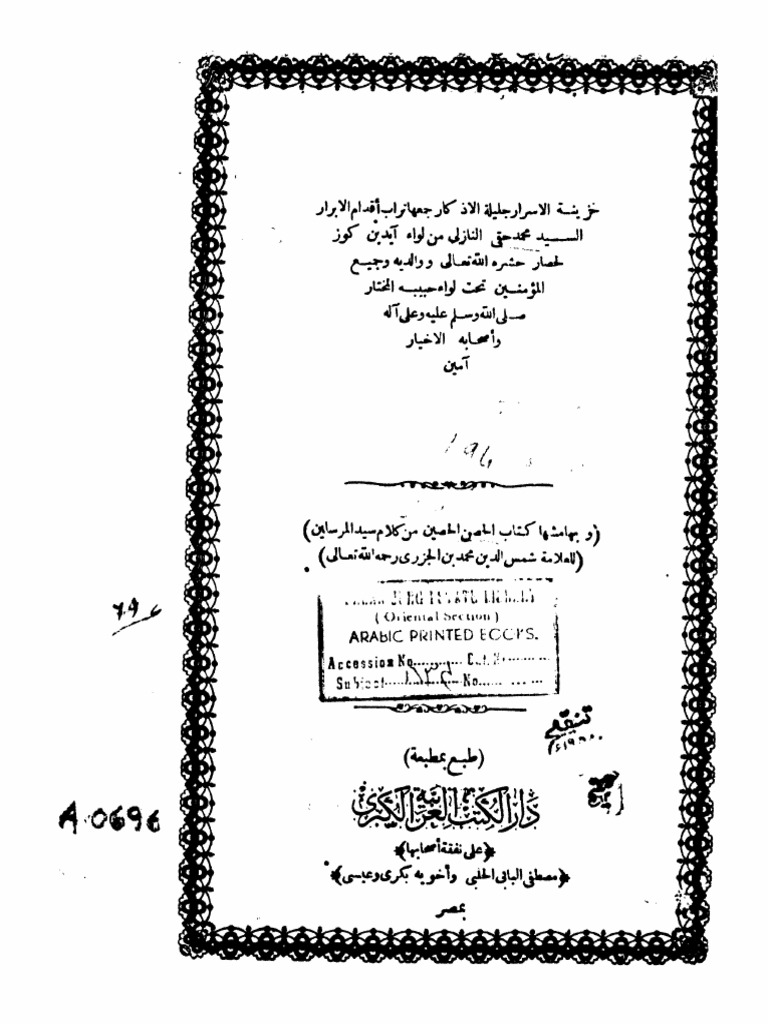 خزينة الاسرار جليلة الاذكار جمعها تراب أقدام الابرار
السيد محمد حقى النازلى من لواء آيدين كوز
لحصار حشره الله تعالى ووالديه وجميع
المؤمنين تحت لواء حبيبه المختار
صلى الله وسلم عليه وعلى آله
وأصحابه الاخيار
آمين
(وبهامشها كتاب الحصن الحصين من كلام سيد المرسلين)
(للعلامة شمس الدين محمد بن الجزرى رحمه الله تعالى)
(Oriental Section)
ARABIC PRINTED BOOKS.
Accession No.......... Cat. No..........
Subject.......... No..........
تنقيح
(طبع بمطبعة)
دار الكتب العربية الكبرى
﴿على نفقة أصحابها﴾
﴿مصطفى البابى الحلبى وأخويه بكرى وعيسى﴾
بمصر
A.0696